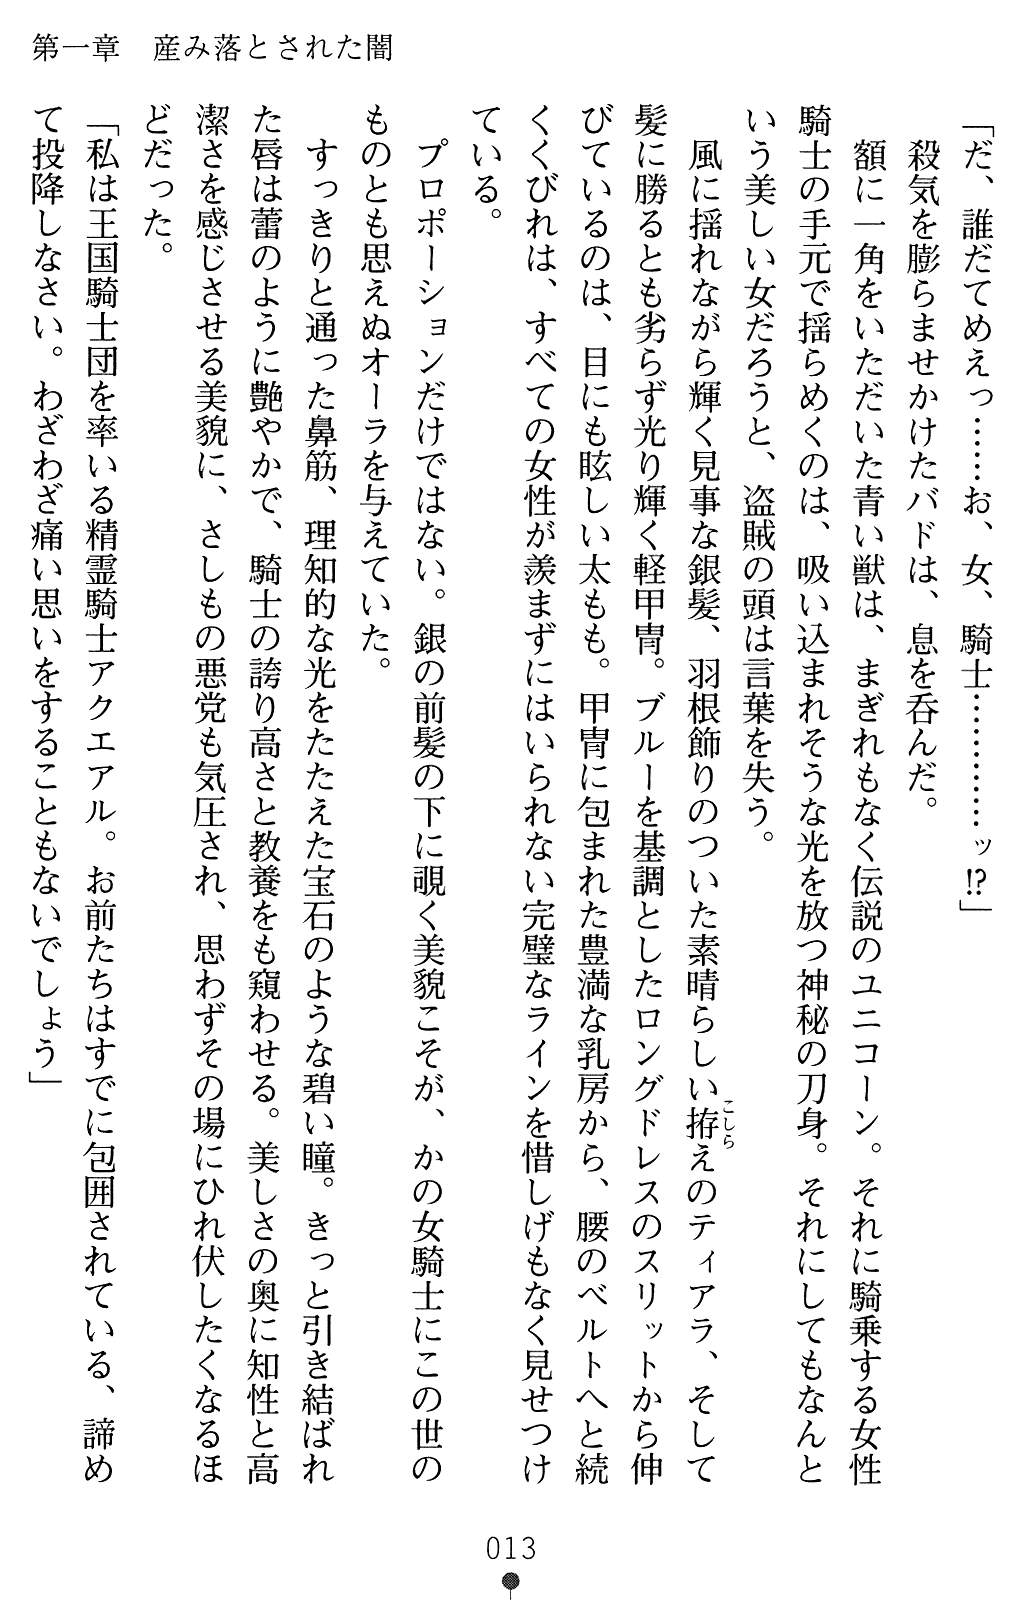 第一章　産み落とされた闇
「だ、誰だてめえっ……お、女、騎士…………ッ!?」
　殺気を膨らませかけたバドは、息を呑んだ。
　額に一角をいただいた青い獣は、まぎれもなく伝説のユニコーン。それに騎乗する女性
騎士の手元で揺らめくのは、吸い込まれそうな光を放つ神秘の刀身。それにしてもなんと
いう美しい女だろうと、盗賊の頭は言葉を失う。
　風に揺れながら輝く見事な銀髪、羽根飾りのついた素晴らしい拵えのティアラ、そして
こしら
髪に勝るとも劣らず光り輝く軽甲冑。ブルーを基調としたロングドレスのスリットから伸
びているのは、目にも眩しい太もも。甲冑に包まれた豊満な乳房から、腰のベルトへと続
くくびれは、すべての女性が羨まずにはいられない完璧なラインを惜しげもなく見せつけ
ている。
　プロポーションだけではない。銀の前髪の下に覗く美貌こそが、かの女騎士にこの世の
ものとも思えぬオーラを与えていた。
　すっきりと通った鼻筋、理知的な光をたたえた宝石のような碧い瞳。きっと引き結ばれ
た唇は蕾のように艶やかで、騎士の誇り高さと教養をも窺わせる。美しさの奥に知性と高
潔さを感じさせる美貌に、さしもの悪党も気圧され、思わずその場にひれ伏したくなるほ
どだった。
「私は王国騎士団を率いる精霊騎士アクエアル。お前たちはすでに包囲されている、諦め
て投降しなさい。わざわざ痛い思いをすることもないでしょう」
013